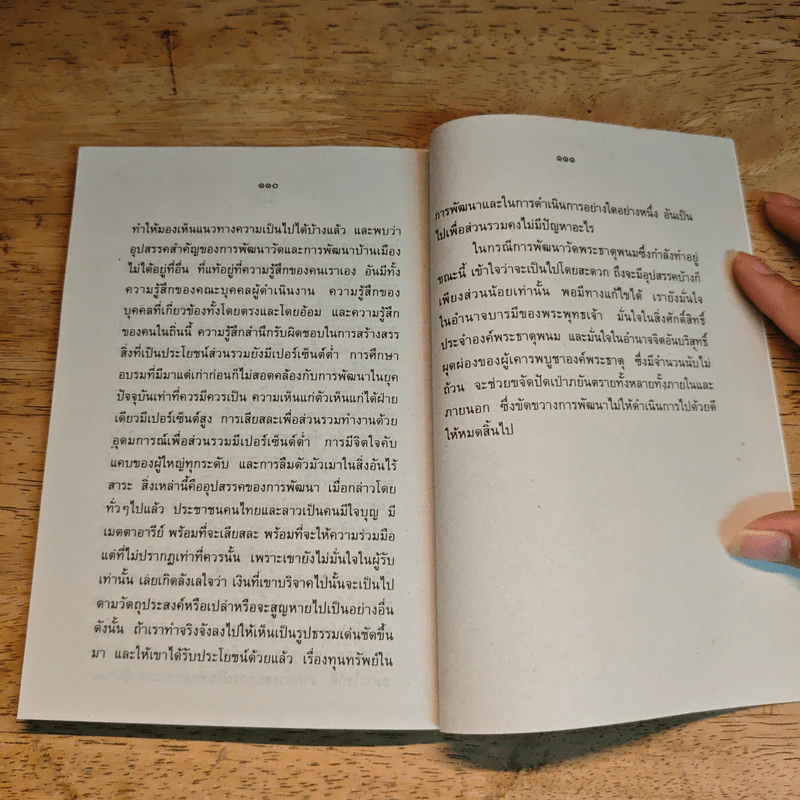 ๑๑๐
ทำให้มองเห็นแนวทางความเป็นไปได้บ้างแล้ว และพบว่า
อุปสรรคสำคัญของการพัฒนาวัดและการพัฒนาบ้านเมือง
ไม่ได้อยู่ที่อื่น ที่แท้อยู่ที่ความรู้สึกของคนเราเอง อันมีทั้ง
ความรู้สึกของคณะบุคคลผู้ดำเนินงาน ความรู้สึกของ
บุคคลที่เกี่ยวข้องทั้งโดยตรงและโดยอ้อม และความรู้สึก
ของคนในถิ่นนี้ ความรู้สึกสำนึกรับผิดชอบในการสร้างสรร
สิ่งที่เป็นประโยชน์ส่วนรวมยังมีเปอร์เซ็นต์ต่ำ การศึกษา
อบรมที่มีมาแต่เก่าก่อนก็ไม่สอดคล้องกับการพัฒนาในยุค
ปัจจุบันเท่าที่ควรมีควรเป็น ความเห็นแก่ตัวเห็นแก่ได้ฝ่าย
เดียวมีเปอร์เซ็นต์สูง การเสียสละเพื่อส่วนรวมทำงานด้วย
อุดมการณ์เพื่อส่วนรวมมีเปอร์เซ็นต์ต่ำ การมีจิตใจคับ
แคบของผู้ใหญ่ทุกระดับ และการลืมตัวมัวเมาในสิ่งอันไร้
สาระ สิ่งเหล่านี้คืออุปสรรคของการพัฒนา เมื่อกล่าวโดย
ทั่วๆไปแล้ว ประชาชนคนไทยและลาวเป็นคนมีใจบุญ มี
เมตตาอารีย์ พร้อมที่จะเสียสละ พร้อมที่จะให้ความร่วมมือ
แต่ที่ไม่ปรากฏเท่าที่ควรนั้น เพราะเขายังไม่มั่นใจในผู้รับ
เท่านั้น เลยเกิดลังเลใจว่า เงินที่เขาบริจาคไปนั้นจะเป็นไป
ตามวัตถุประสงค์หรือเปล่าหรือจะสูญหายไปเป็นอย่างอื่น
ดังนั้น ถ้าเราทำจริงจังลงไปให้เห็นเป็นรูปธรรมเด่นชัดขึ้น
มา และให้เขาได้รับประโยชน์ด้วยแล้ว เรื่องทุนทรัพย์ใน
๑๑๑
การพัฒนาและในการดำเนินการอย่างใดอย่างหนึ่ง อันเป็น
ไปเพื่อส่วนรวมคงไม่มีปัญหาอะไร
ในกรณีการพัฒนาวัดพระธาตุพนมซึ่งกำลังทำอยู่
ขณะนี้ เข้าใจว่าจะเป็นไปโดยสะดวก ถึงจะมีอุปสรรคบ้างก็
เพียงส่วนน้อยเท่านั้น พอมีทางแก้ไขได้ เรายังมั่นใจ
ในอำนาจบารมีของพระพุทธเจ้า มั่นใจในสิ่งศักดิ์สิทธิ์
ประจำองค์พระธาตุพนม และมั่นใจในอำนาจจิตอันบริสุทธิ์
ผุดผ่องของผู้เคารพบูชาองค์พระธาตุ ซึ่งมีจำนวนนับไม่
ถ้วน จะช่วยขจัดปัดเป่าภยันตรายทั้งหลายทั้งภายในและ
ภายนอก ซึ่งขัดขวางการพัฒนาไม่ให้ดำเนินการไปด้วยดี
ให้หมดสิ้นไป